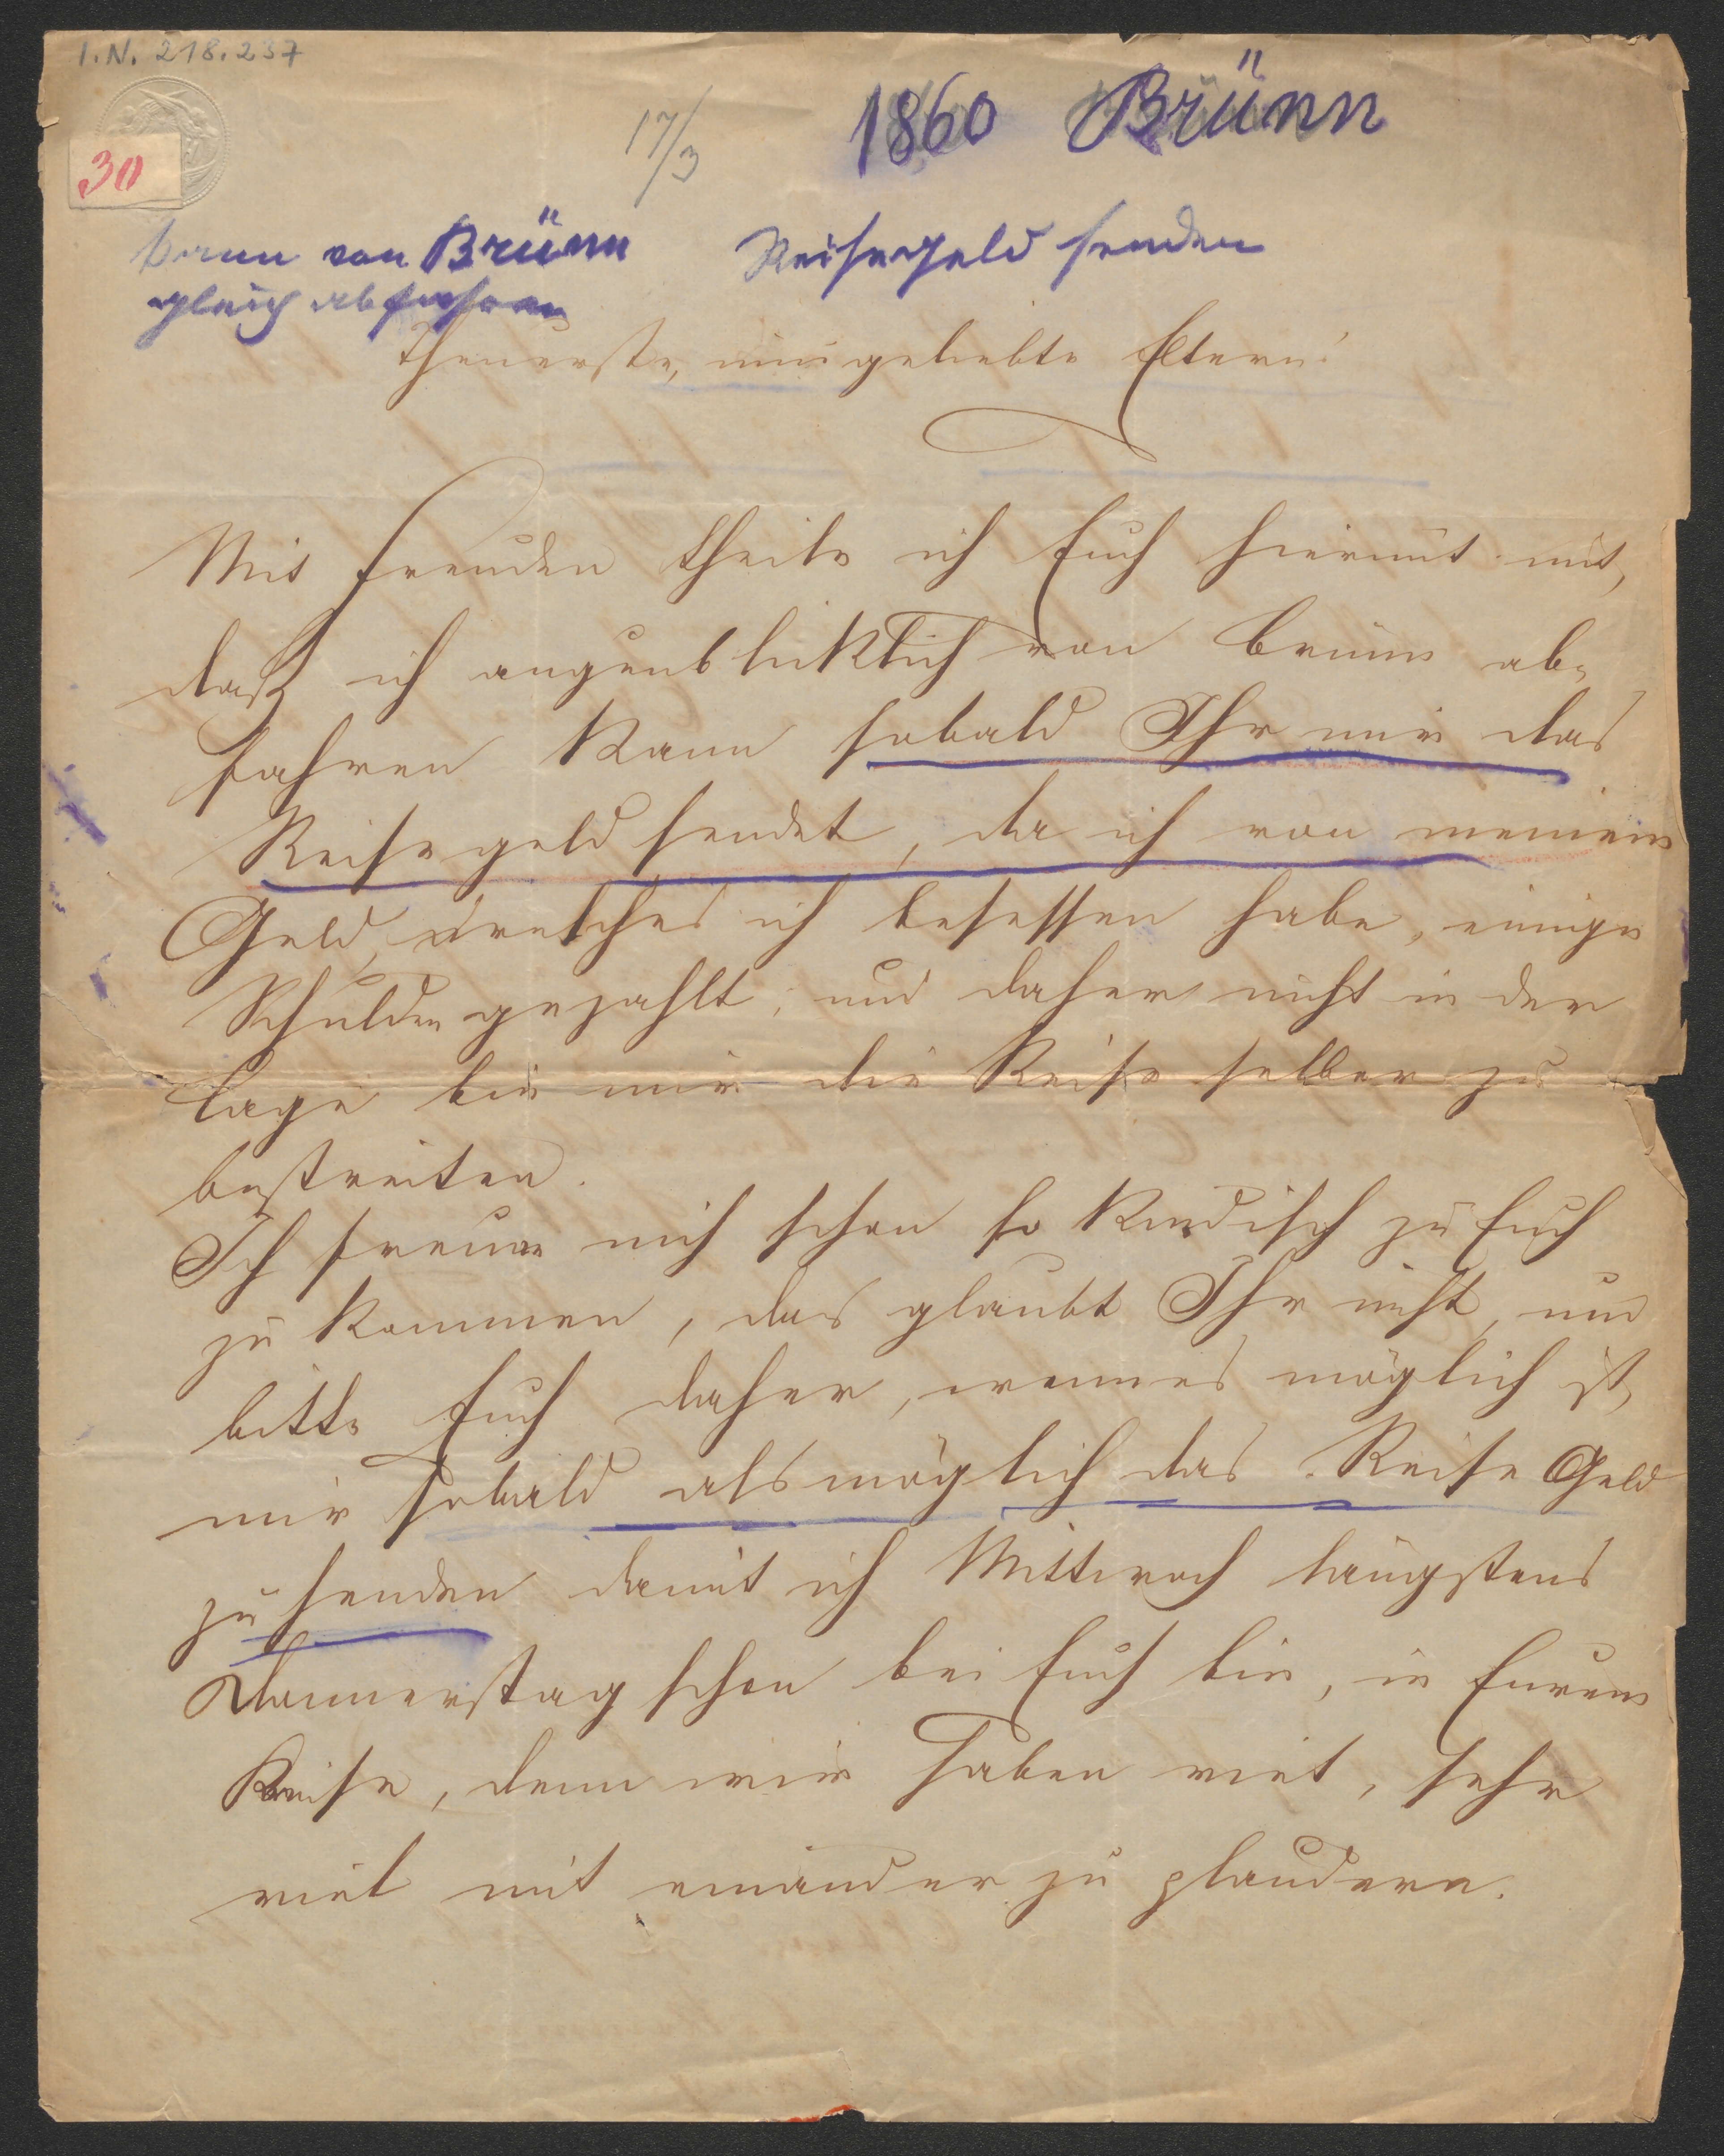 I.N. 218.237
30
17/3
1860 Brünn
von Brünn
gleich abfahren
Reisegeld senden
Theuerste, innigeliebte Eltern!
Mit Freuden theile ich Euch hiermit mit,
daß ich augenblicklich von Brünn ab-
fahren kann sobald Ihr mir das
Reisegeld sendet, da ich von meinem
Geld, welches ich besessen habe, einige
Schulden gezahlt, und daher nicht in der
Lage bin mir die Reise selber zu
bestreiten.
Ich freue mich schon so kindisch zu Euch
zu kommen, das glaubt Ihr nicht, und
bitte Euch daher, wenn es möglich ist,
mir sobald als möglich das Reise Geld
zu senden damit ich Mittwoch längstens
Donnerstag schon bei Euch bin, in Eurem
Kreise, denn wir haben viel, sehr
viel mit einander zu plaudern.